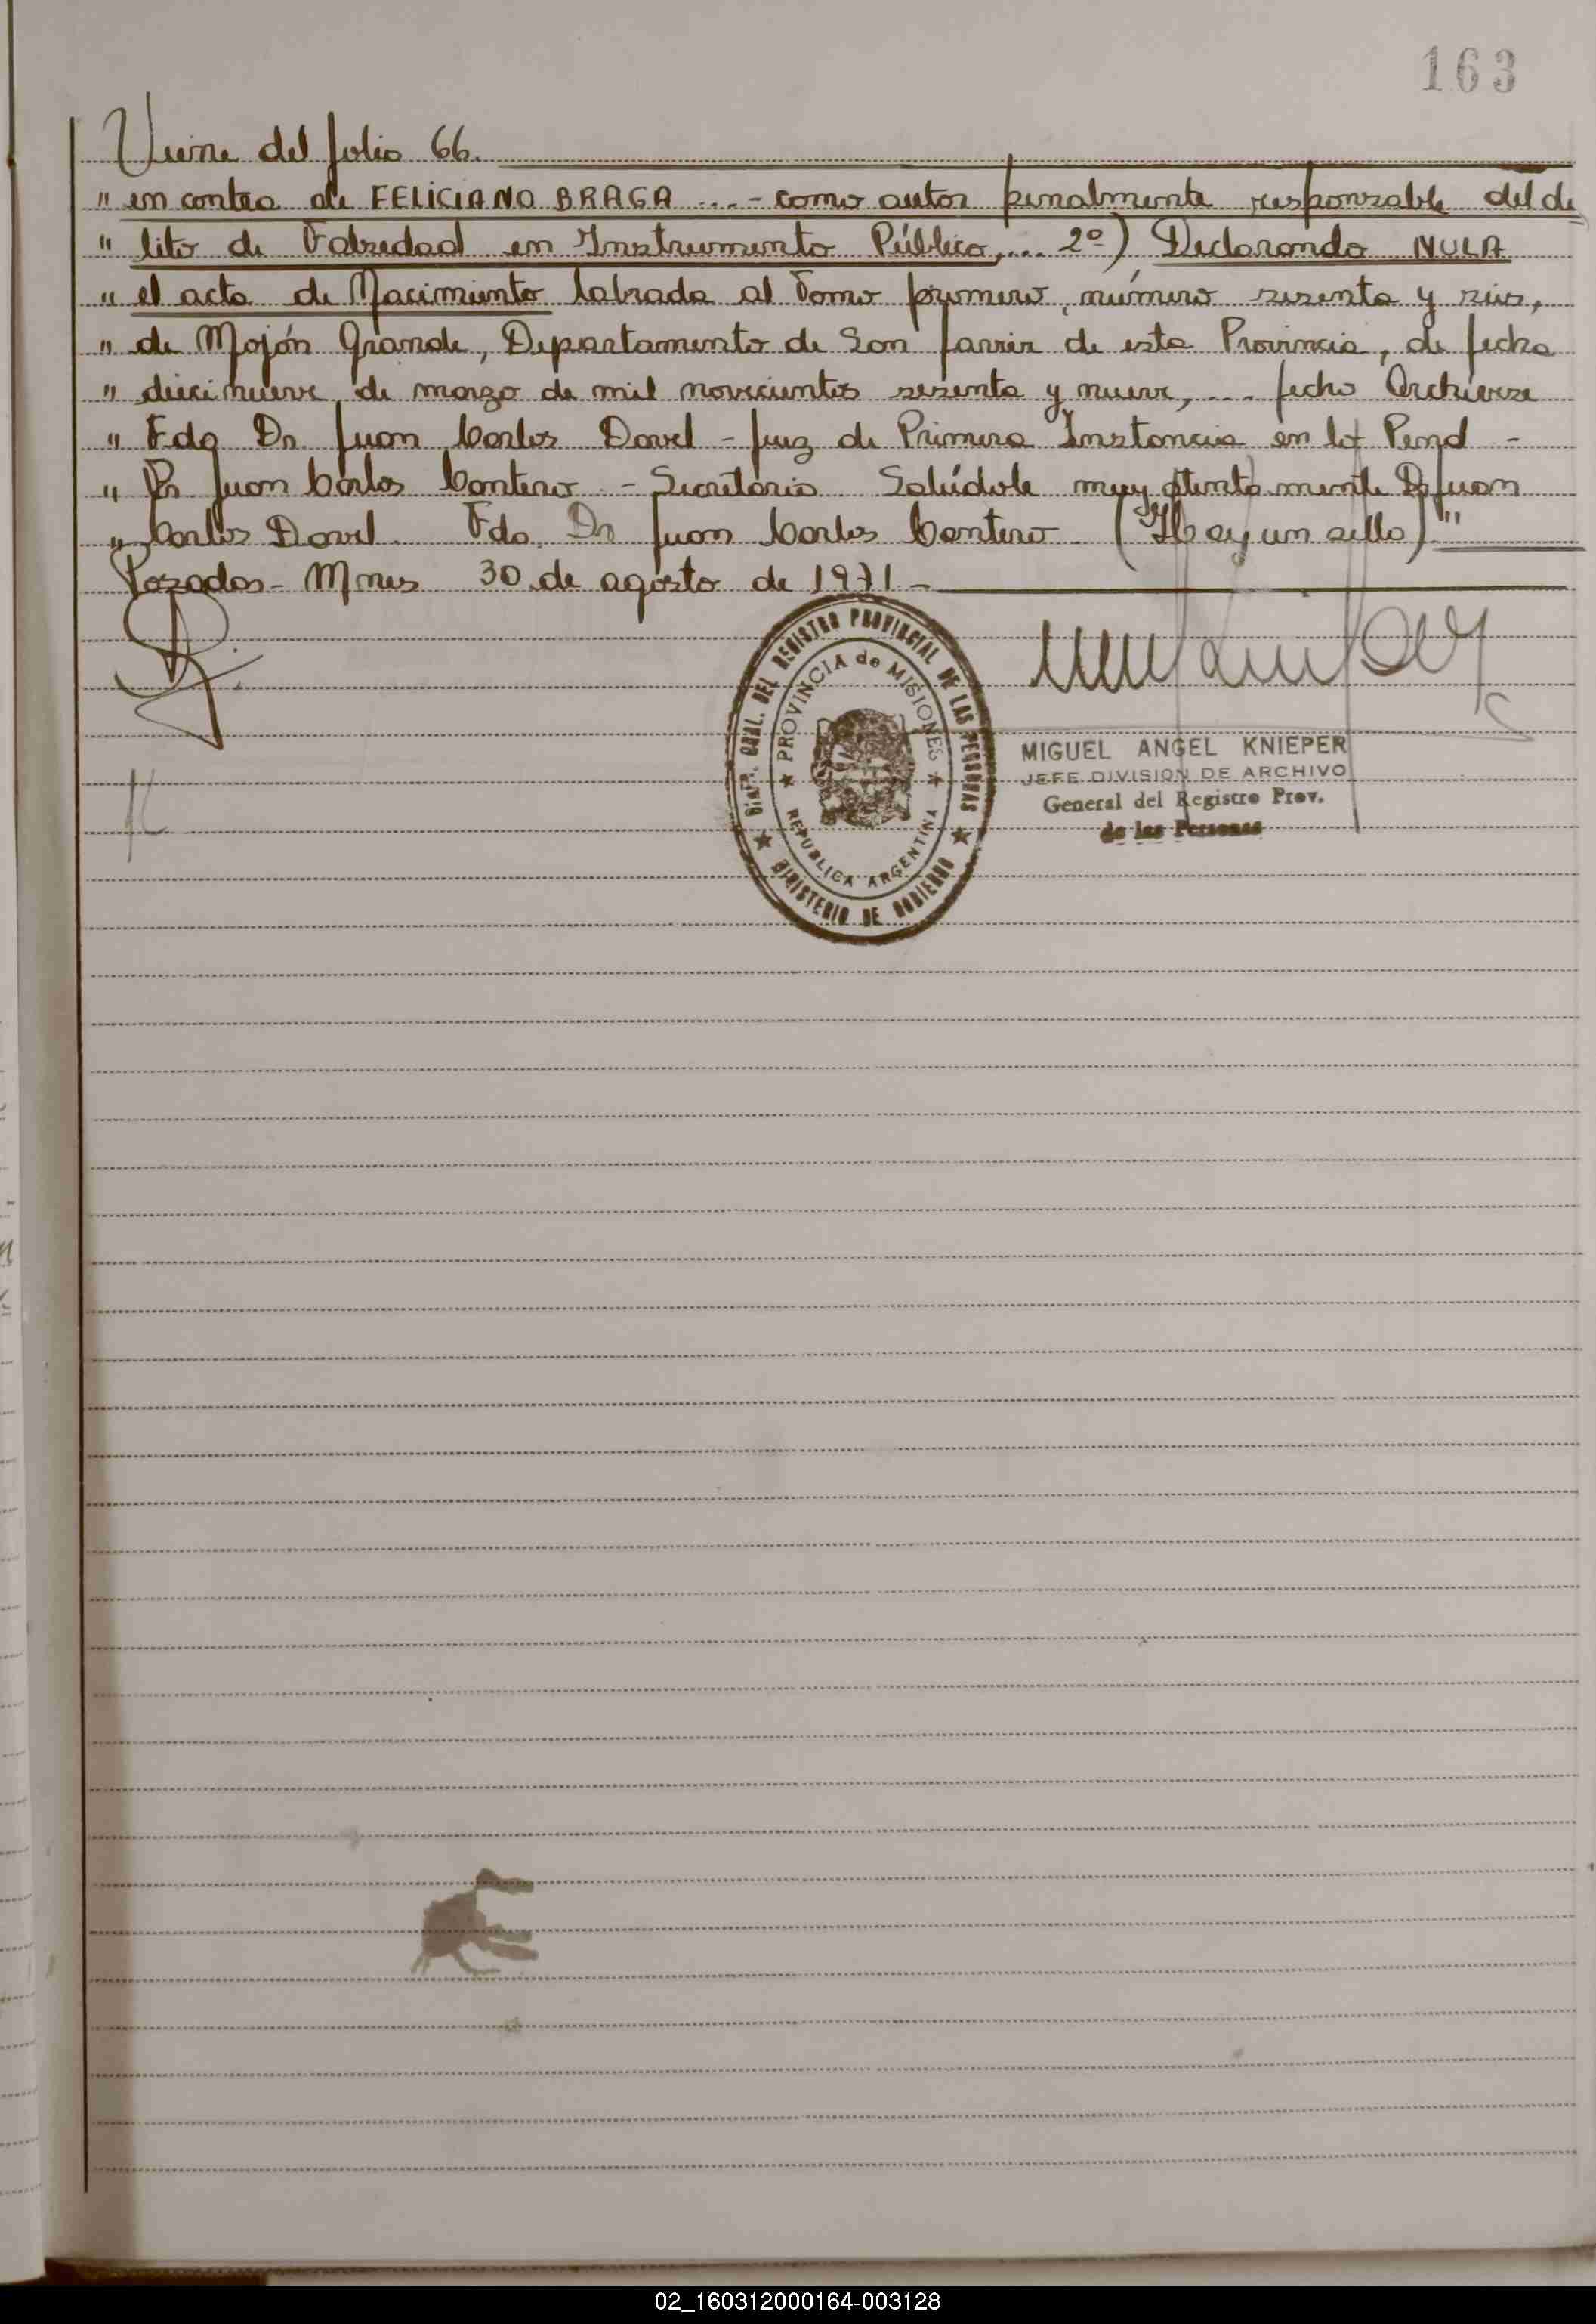 163
Viene del folio 66.
" en contra de FELICIANO BRAGA ... - como autor penalmente responsable del de
" lito de Falsedad en Instrumento Público, ... 2º) Declarando NULA
" el acta de Nacimiento labrada al Tomo primero, número sesenta y seis,
" de Mojón Grande, Departamento de San Javier de esta Provincia, de fecha
" diecinueve de marzo de mil novecientos sesenta y nueve, ... fecho Archívese
" Fdo Dr. Juan Carlos Dorel - Juez de Primera Instancia en lo Penal -
" Dr Juan Carlos Contero - Secretario Salúdole muy atentamente Dr Juan
" Carlos Dorel. Fdo. Dr Juan Carlos Contero. (Hay un sello)"
Posadas - Mnes 30 de agosto de 1971 -
DIREC. GRAL. DEL REGISTRO PROVINCIAL DE LAS PERSONAS
PROVINCIA de MISIONES
REPUBLICA ARGENTINA
MINISTERIO DE GOBIERNO
MIGUEL ANGEL KNIEPER
JEFE DIVISION DE ARCHIVO
General del Registro Prov.
de las Personas
02_160312000164-003128